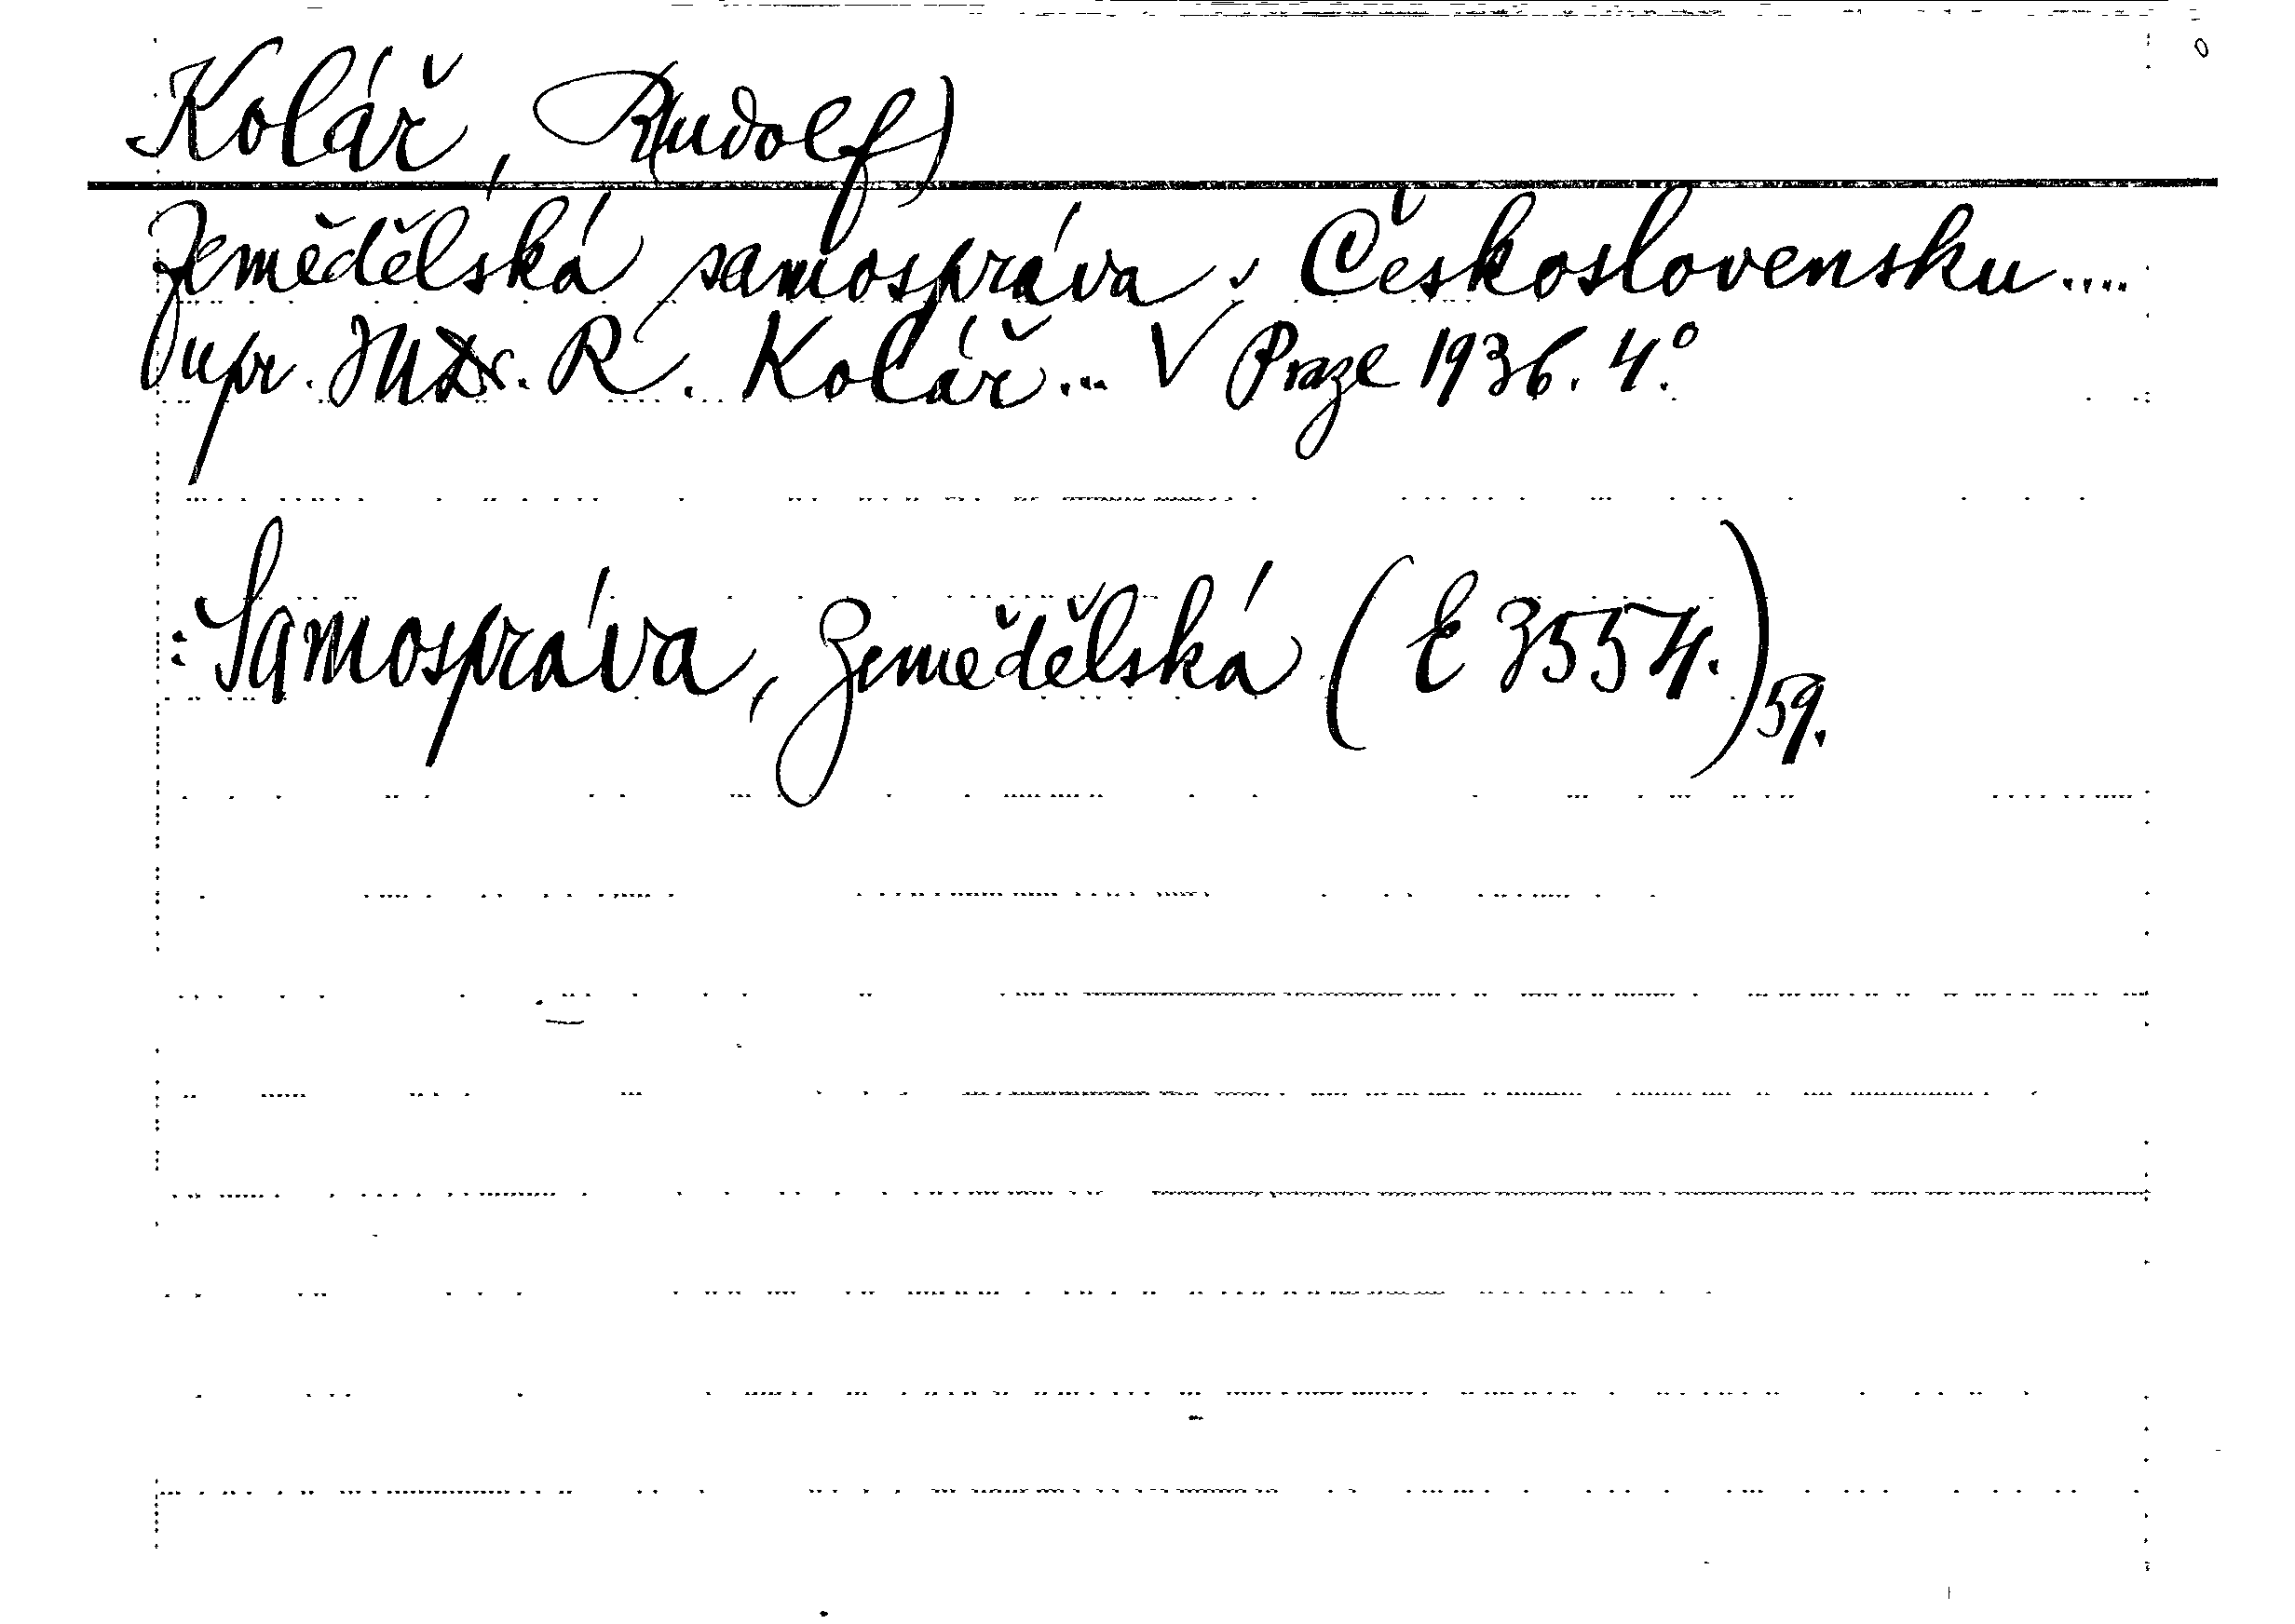 Kolář, Rudolf)
Zemědělská samospráva v Československu....
upr. JUDr. R. Kolář... V Praze 1936. 4°.
: Samospráva, zemědělská (E 3554.) 59.